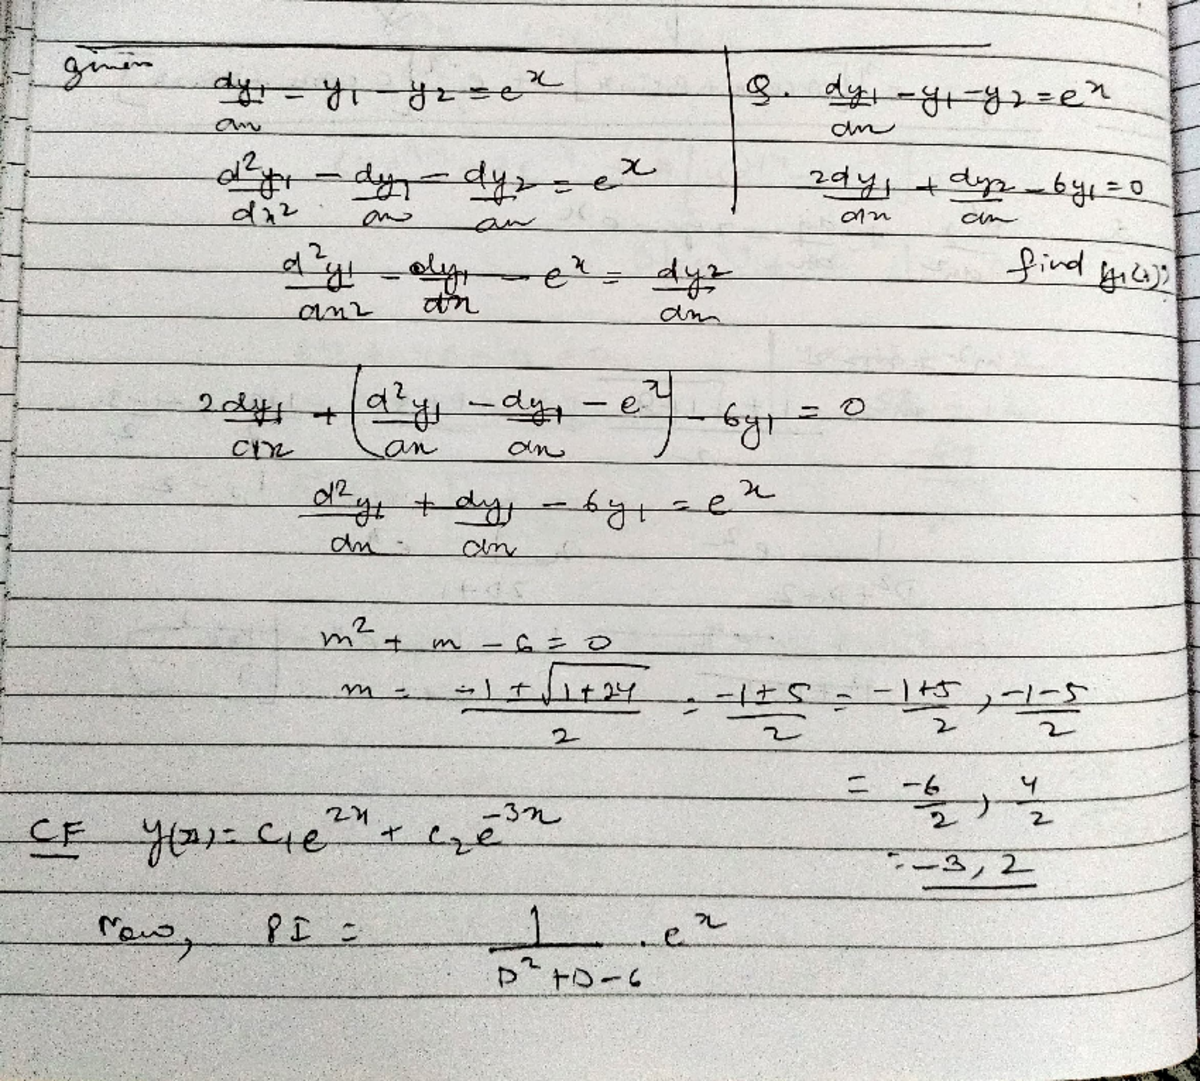 given
dy₁/dx = y₁ - y₂ = eˣ
d²y₁/dx² - dy₁/dx - dy₂/dx = eˣ
d²y₁/dx² - dy₁/dx - eˣ = dy₂/dx
Q. dy₁/dx - y₁ - y₂ = eˣ
2dy₁/dx + dy₂/dx - 6y₁ = 0
find y₁(x)?
2dy₁/dx + (d²y₁/dx - dy₁/dx - eˣ) - 6y₁ = 0
d²y₁/dx + dy₁/dx - 6y₁ = eˣ
m² + m - 6 = 0
m = -1 ± √1+24 / 2 = -1±5/2 = -1+5/2, -1-5/2
= -6/2, 4/2
= -3, 2
CF y(x) = C₁e²ˣ + C₂e⁻³ˣ
Now, PI = 1/D²+D-6 . eˣ